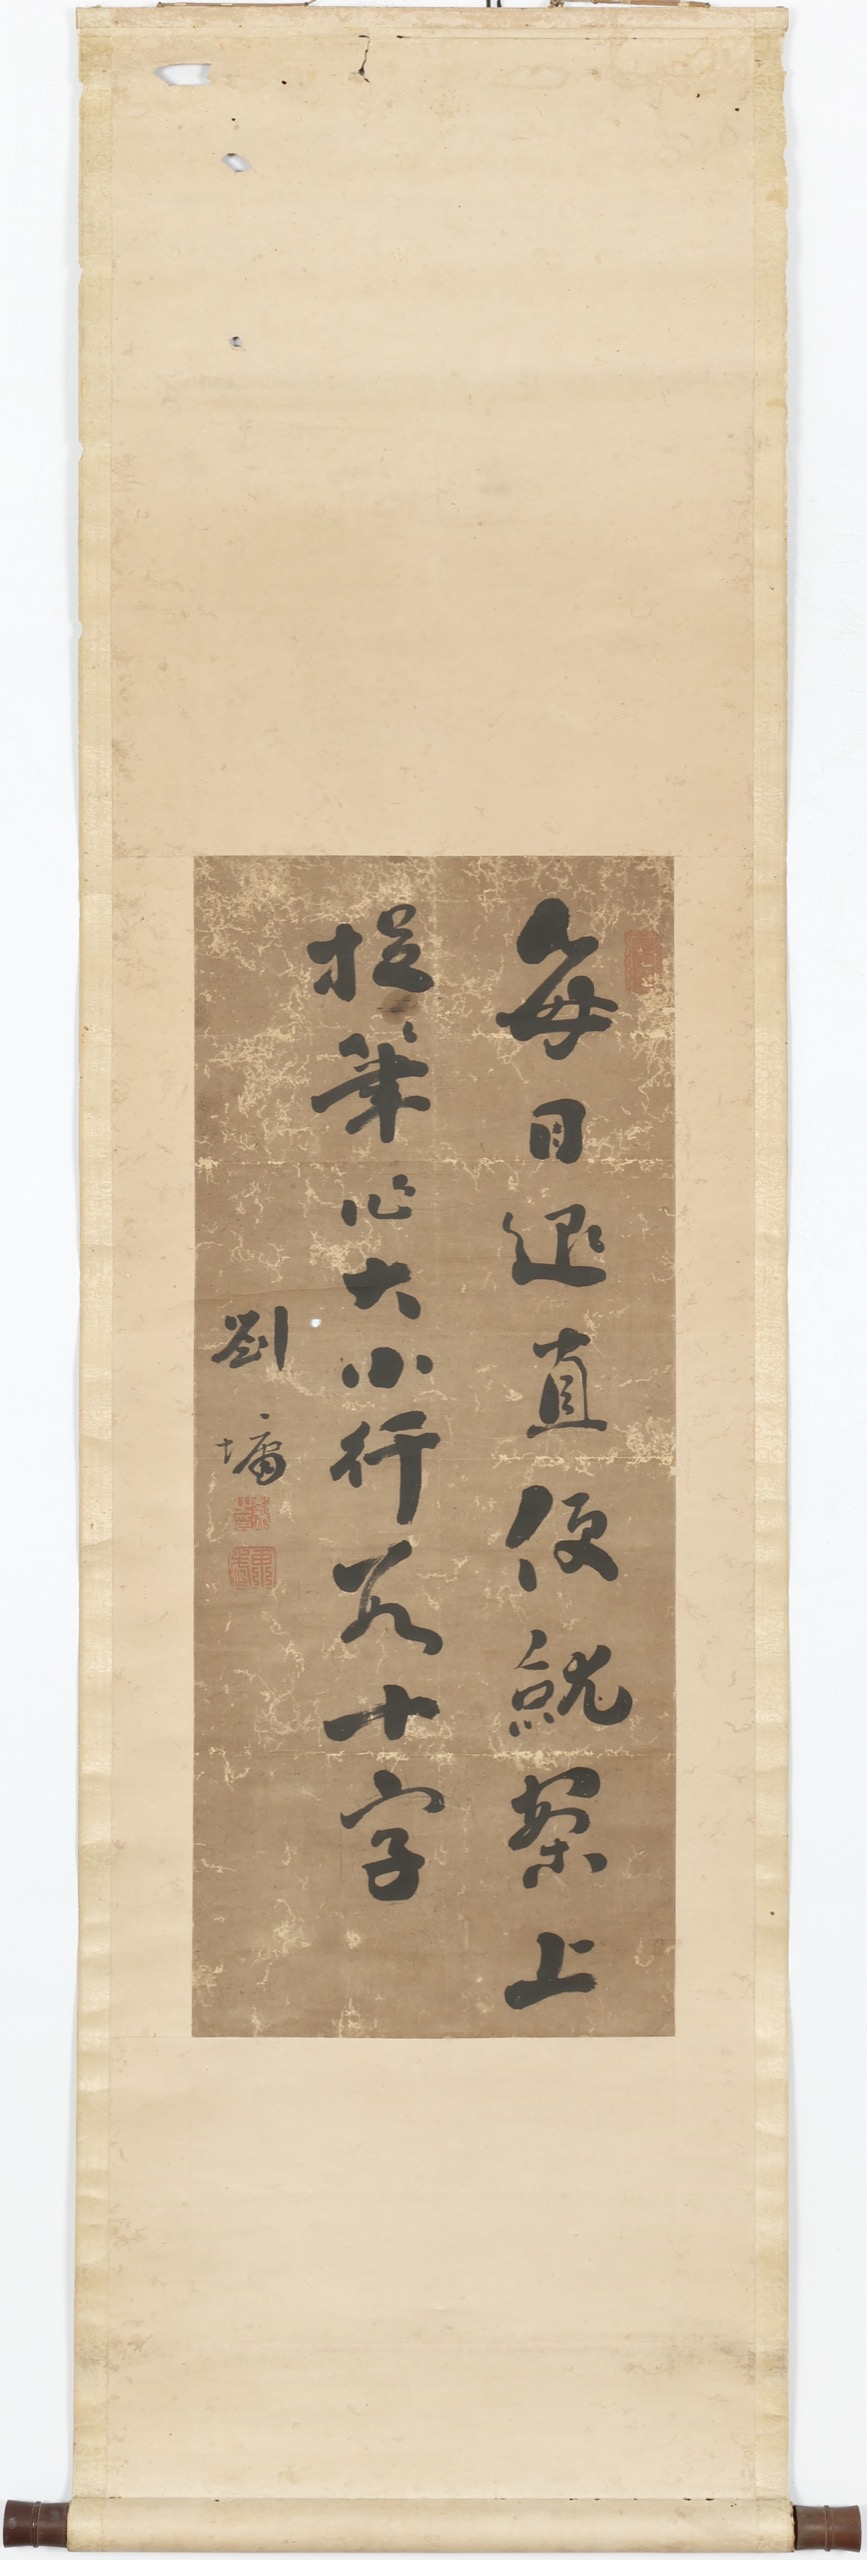 每日退直便就案上
捉筆作大小行數十字
劉墉